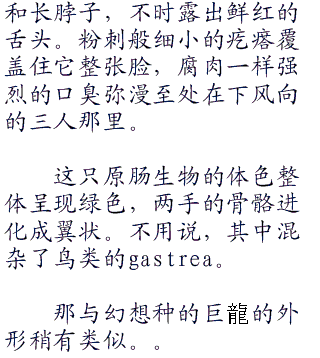 和长脖子，不时露出鲜红的
舌头。粉刺般细小的疙瘩覆
盖住它整张脸，腐肉一样强
烈的口臭弥漫至处在下风向
的三人那里。
这只原肠生物的体色整
体呈现绿色，两手的骨骼进
化成翼状。不用说，其中混
杂了鸟类的gastrea。
那与幻想种的巨龍的外
形稍有类似。。